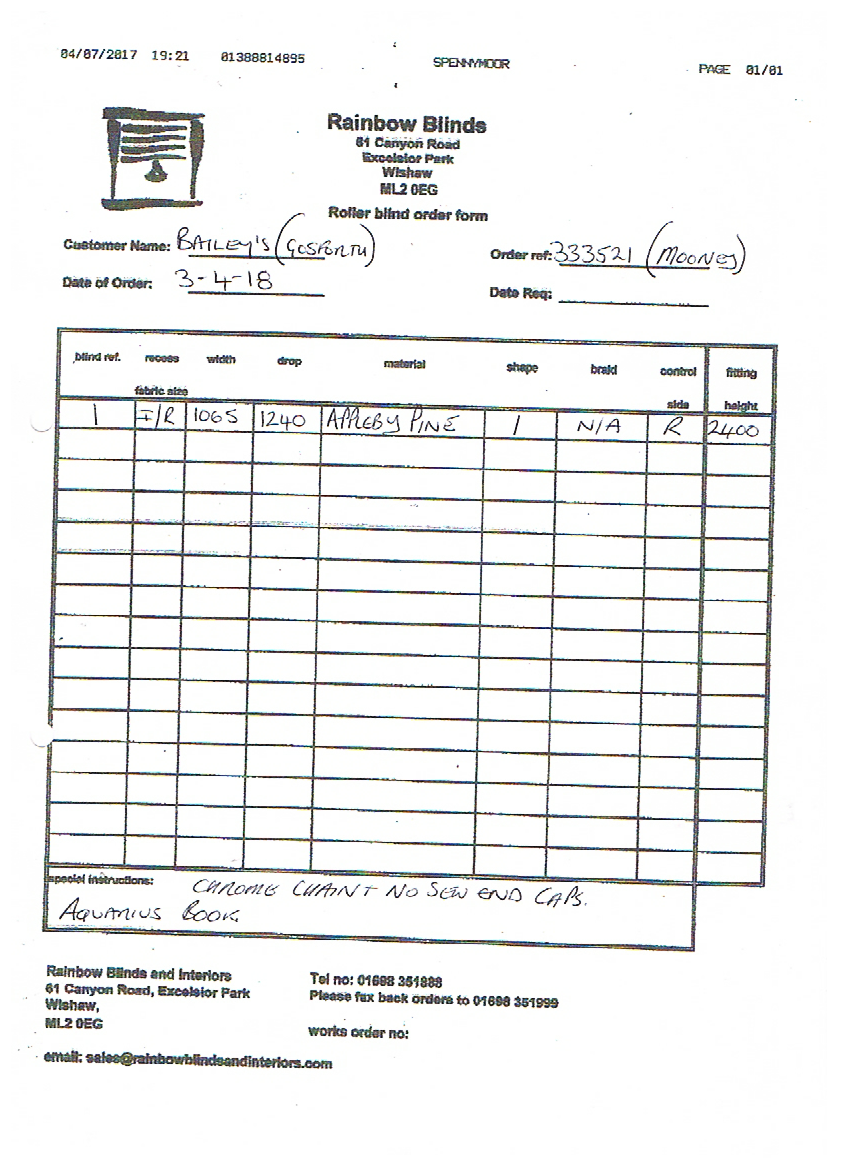 04/07/2017 19:21 01388814895 SPENNYMOOR PAGE 01/01
Rainbow Blinds
61 Canyon Road
Excelsior Park
Wishaw
ML2 0EG
Roller blind order form
Customer Name: BAILEY'S (GOSFORTH) Order ref: 333521 (MOONEY)
Date of Order: 3-4-18 Date Req:
blind ref. recess width drop material shape braid control fitting
fabric size side height
1 I/R 1065 1240 APPLEBY PINE 1 N/A R 2400
special instructions: CHROME CHAIN + NO SEW END CAPS.
AQUARIUS BOOK
Rainbow Blinds and Interiors Tel no: 01698 351888
61 Canyon Road, Excelsior Park Please fax back orders to 01698 351999
Wishaw,
ML2 0EG works order no:
email: sales@rainbowblindsandinteriors.com